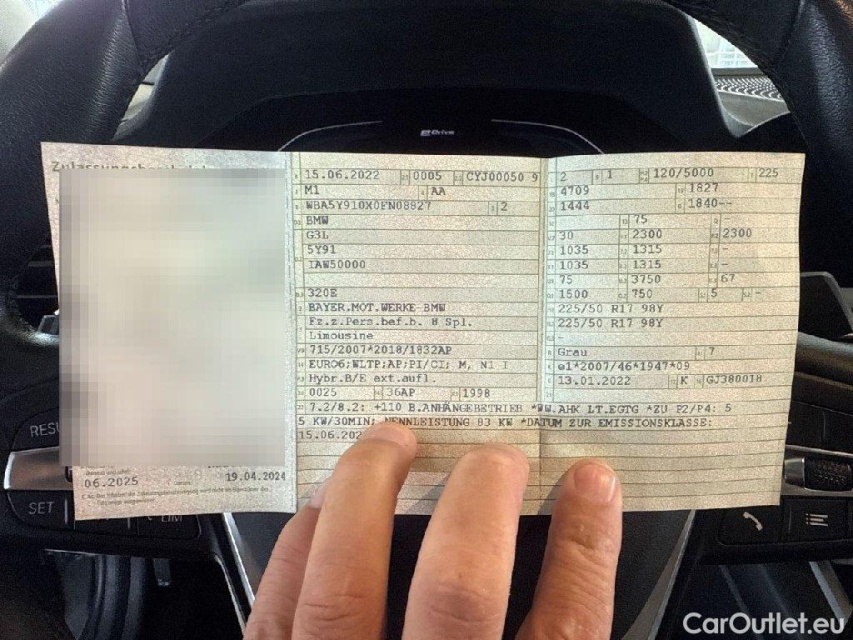 eDrive
15.06.2022 0005 CYJ00050 9
M1 AA
WBA5Y910X0FN08827 2
BMW
G3L
5Y91
IAW50000
320E
BAYER.MOT.WERKE-BMW
Fz.z.Pers.bef.b. 8 Spl.
Limousine
715/2007*2018/1832AP
EURO6;WLTP;AP;PI/CI; M, N1 I
Hybr.B/E ext.aufl.
0025 36AP 1998
7.2/8.2: +110 B.ANHÄNGEBETRIEB *WW.AHK LT.EGTG *ZU P2/P4: 5
5 KW/30MIN; NENNLEISTUNG 83 KW *DATUM ZUR EMISSIONSKLASSE:
15.06.202
2 1 120/5000 225
4709 1827
1444 1840--
75 -
30 2300 2300
1035 1315 -
1035 1315 -
75 3750 67
1500 750 5 -
225/50 R17 98Y
225/50 R17 98Y
-
Grau 7
e1*2007/46*1947*09
13.01.2022 K GJ380018
06.2025 19.04.2024
SET
CarOutlet.eu